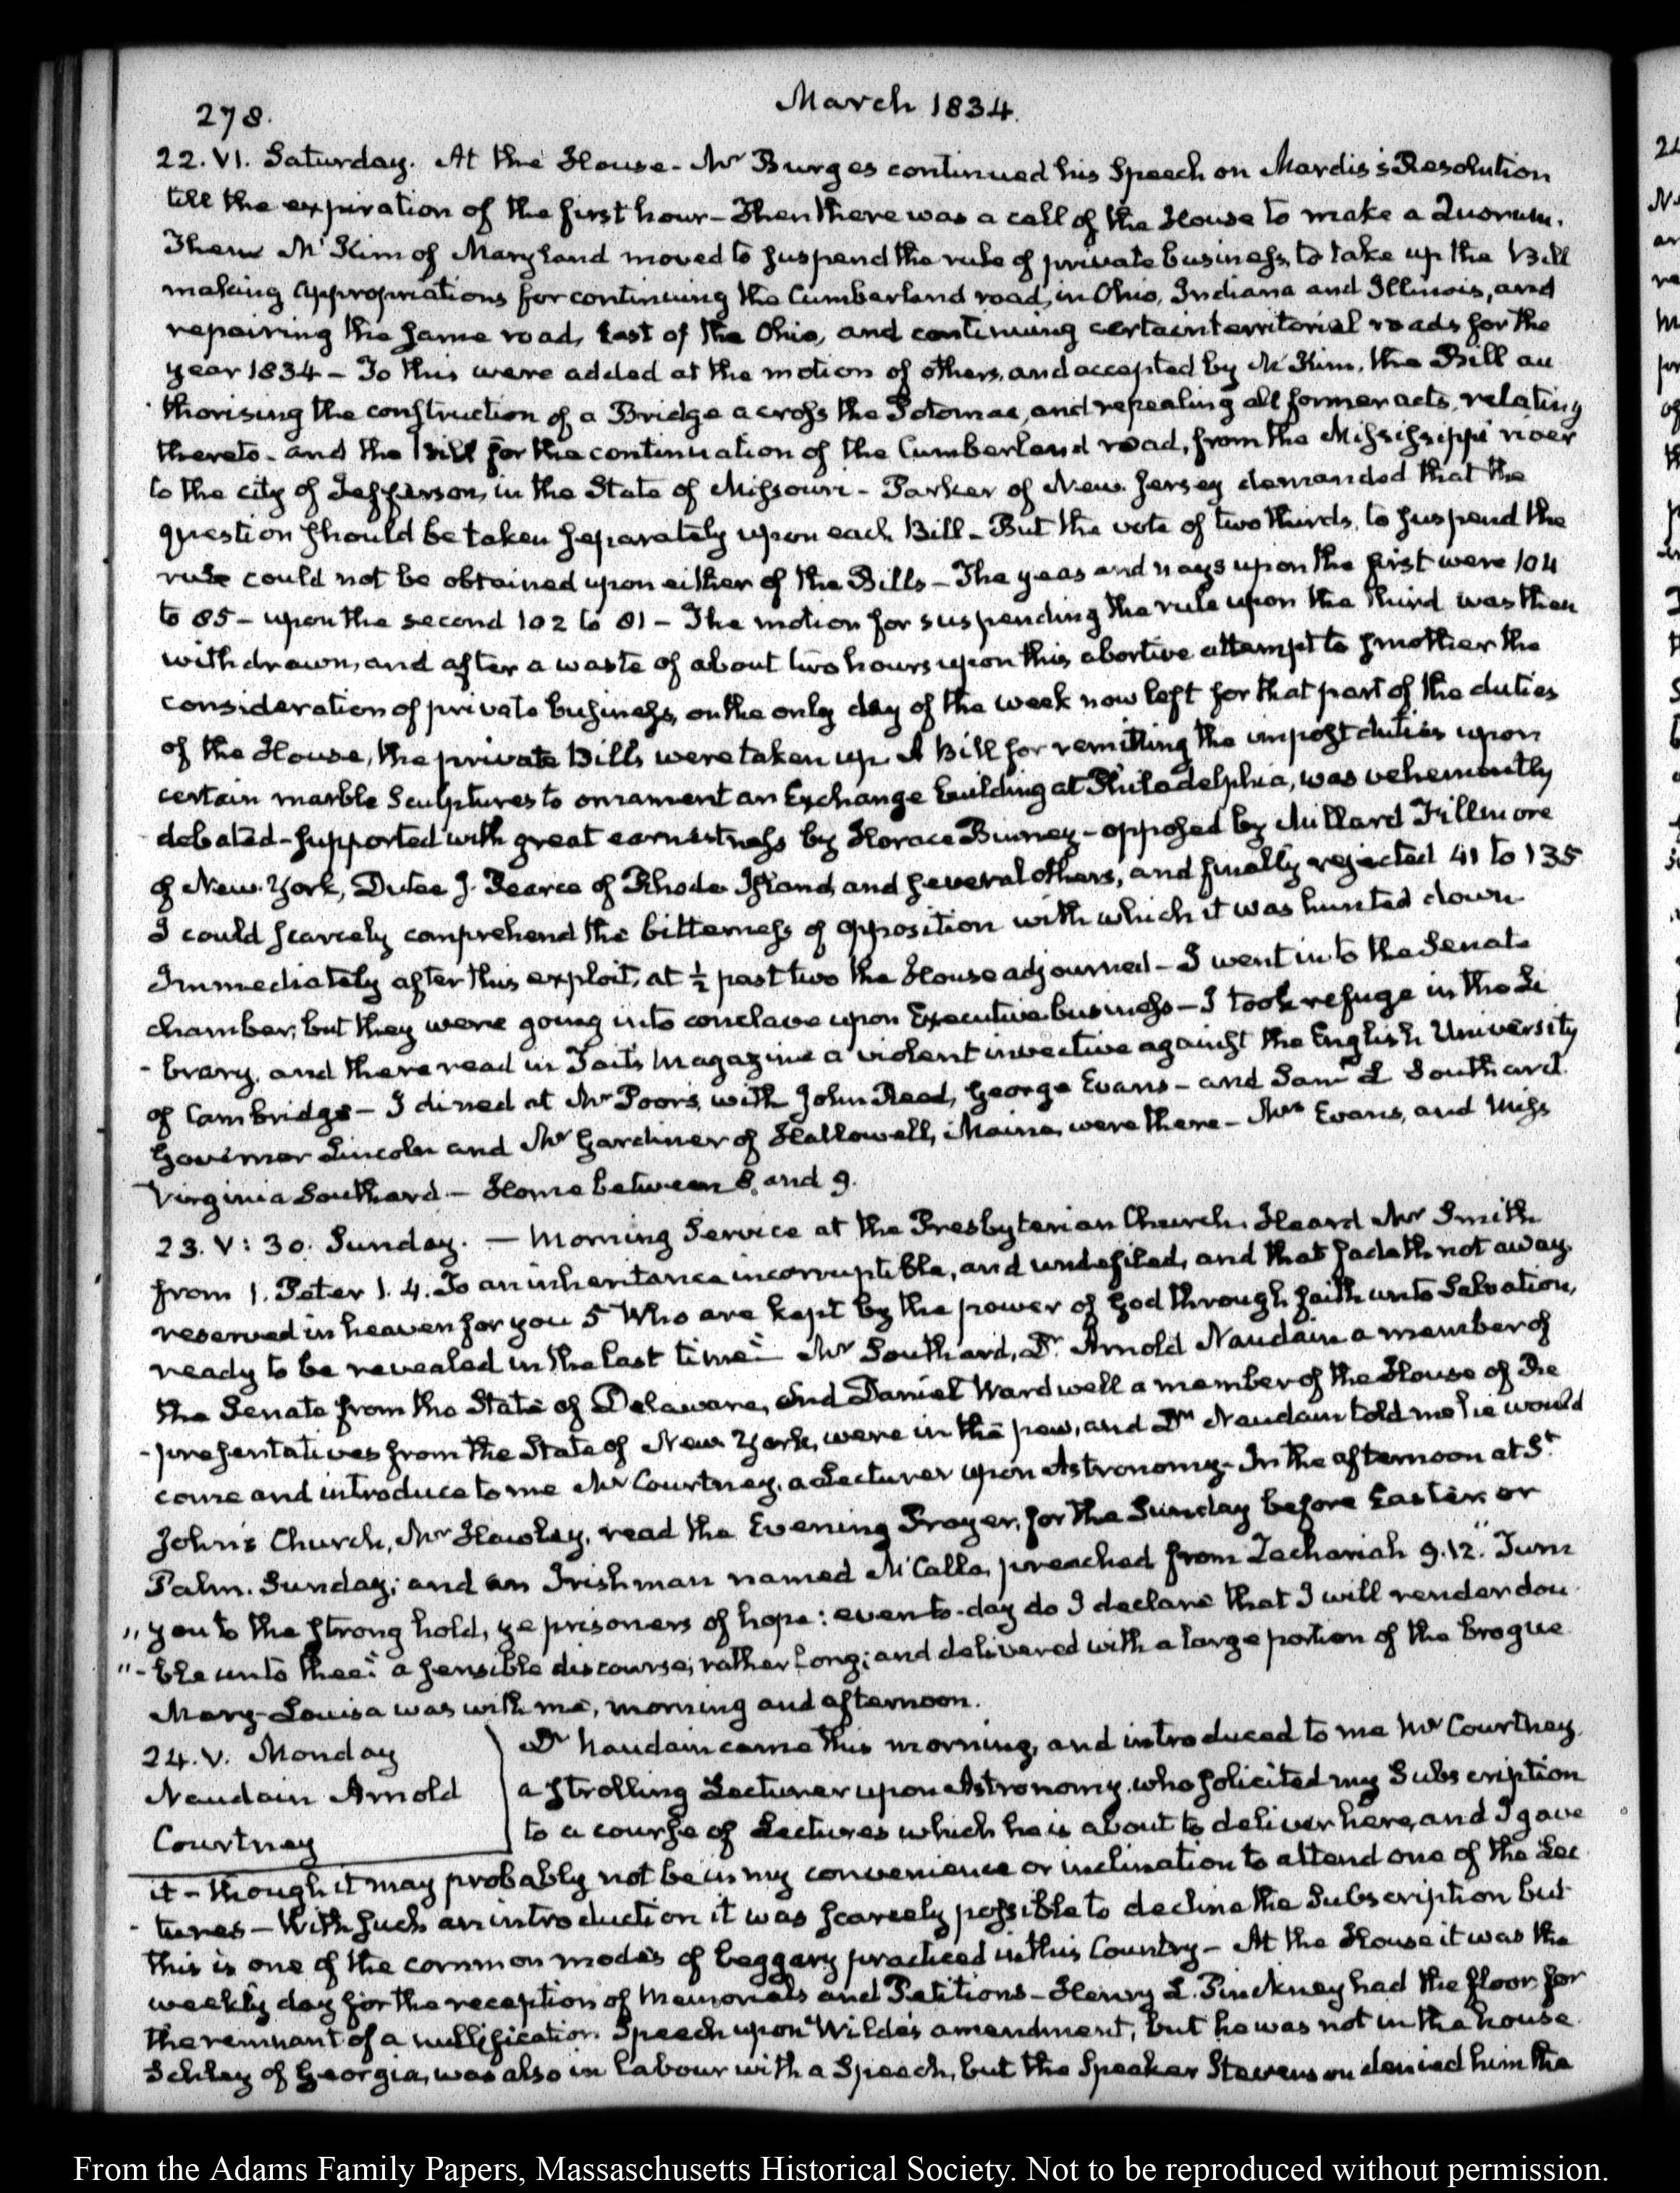 278.
March 1834.
22. VI. Saturday. At the House- Mr Burges continued his Speech on Mardis's Resolution
till the expiration of the first hour- Then there was a call of the House to make a Quorum.
Then McKim of Maryland moved to suspend the rule of private business, to take up the Bill
making appropriations for continuing the Cumberland road, in Ohio, Indiana and Illinois, and
repairing the same road, East of the Ohio, and continuing certain territorial roads for the
year 1834- To this were added at the motion of others, and accepted by McKim, the Bill au
thorising the construction of a Bridge across the Potomac, and repealing all former acts, relating
thereto- and the Bill for the continuation of the Cumberland road, from the Mississippi river
to the city of Jefferson, in the State of Missouri- Parker of New Jersey demanded that the
question should be taken separately upon each Bill- But the vote of two thirds, to suspend the
rule could not be obtained upon either of the Bills- The yeas and nays upon the first were 104
to 85- upon the second 102 to 81- The motion for suspending the rule upon the third was then
withdrawn, and after a waste of about two hours upon this abortive attempt to smother the
consideration of private business, on the only day of the week now left for that part of the duties
of the House, the private Bills were taken up. A Bill for remitting the impost duties upon
certain marble Sculptures to ornament an Exchange building at Philadelphia, was vehemently
debated- supported with great earnestness by Horace Binney- opposed by Millard Fillmore
of New-York, Dutee J. Pearce of Rhode Island, and several others, and finally rejected 41 to 135
I could scarcely comprehend the bitterness of opposition with which it was hunted down
Immediately after this exploit, at ½ past two the House adjourned- I went into the Senate
chamber, but they were going into conclave upon Executive business- I took refuge in the Li
-brary, and there read in Tait's Magazine a violent invective against the English University
of Cambridge- I dined at Mr Poor's, with John Reed, George Evans- and Saml L Southard.
Governor Lincoln and Mr Gardiner of Hallowell, Maine, were there- Mrs Evans, and Miss
Virginia Southard- Home between 8 and 9.
23. V: 30. Sunday. — Morning Service at the Presbyterian Church. Heard Mr Smith
from 1. Peter 1. 4. To an inheritance incorruptible, and undefiled, and that fadeth not away,
reserved in heaven for you 5 Who are kept by the power of God through faith unto Salvation,
ready to be revealed in the last time"- Mr Southard, Dr Arnold Naudain a member of
the Senate from the State of Delaware, and Daniel Wardwell a member of the House of Re
-presentatives from the State of New-York, were in the pew, and Dr Naudain told me he would
come and introduce to me Mr Courtney, a Lecturer upon Astronomy- In the afternoon at St
John's Church, Mr Hawley, read the Evening Prayer, for the Sunday before Easter, or
Palm-Sunday; and an Irishman named McCalla, preached from Zechariah 9.12. "Turn
"you to the strong hold, ye prisoners of hope: even to-day do I declare that I will render dou
"-ble unto thee": a sensible discourse; rather long; and delivered with a large portion of the brogue
Mary-Louisa was with me, morning and afternoon.
24. V. Monday
Naudain Arnold
Courtney
Dr Naudain came this morning, and introduced to me Mr Courtney,
a strolling Lecturer upon Astronomy, who solicited my Subscription
to a course of Lectures which he is about to deliver here, and I gave
it- though it may probably not be in my convenience or inclination to attend one of the Lec
-tures- With such an introduction it was scarcely possible to decline the Subscription but
this is one of the common modes of beggary practiced in this Country- At the House it was the
weekly day for the reception of Memorials and Petitions- Henry L. Pinckney had the floor for
the remnant of a nullification Speech upon Wilde's amendment, but he was not in the house.
Schley of Georgia, was also in labour with a Speech, but the Speaker Stevenson denied him the
From the Adams Family Papers, Massachusetts Historical Society. Not to be reproduced without permission.